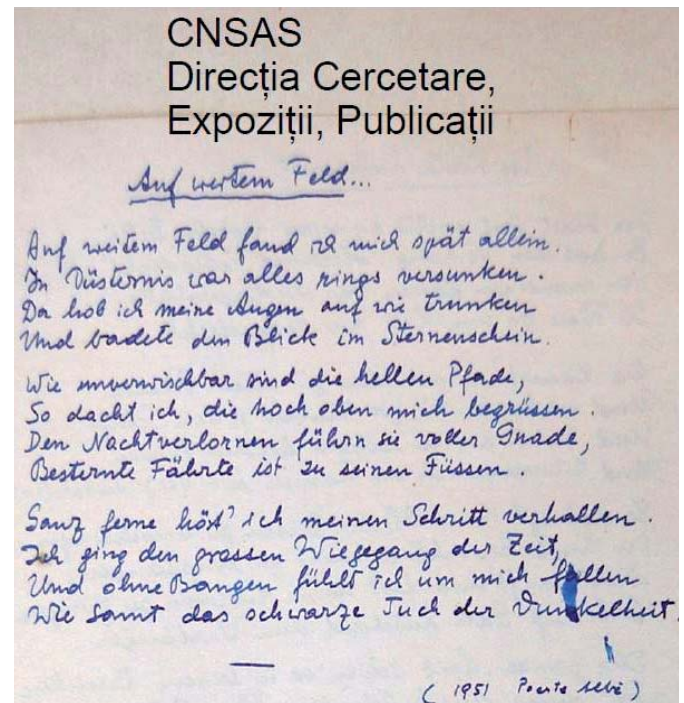 CNSAS
Direcția Cercetare,
Expoziții, Publicații
Auf weitem Feld...
Auf weitem Feld fand ich mich spät allein.
In Düsternis war alles rings versunken.
Da hob ich meine Augen auf wie trunken
Und badete den Blick im Sternenschein.
Wie unverwischbar sind die hellen Pfade,
So dacht ich, die hoch oben mich begrüssen.
Den Nachtverlornen führn sie voller Gnade,
Besternte Fährte ist zu seinen Füssen
Ganz ferne hört' ich meinen Schritt verhallen.
Ich ging den grossen Wiegegang der Zeit,
Und ohne Bangen fühlt ich um mich fallen
Wie Samt das schwarze Tuch der Dunkelheit.
(1951 Poarta)